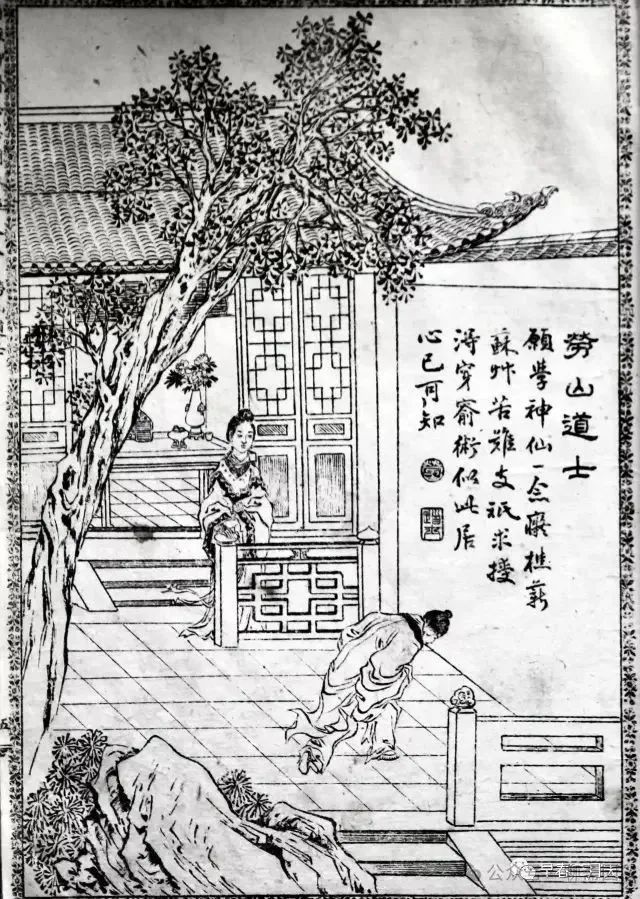 勞山道士
願學神仙一念癡樵薪
蘇艸苦難支祇求授
淂穿窬術似此居
心已可知
公众